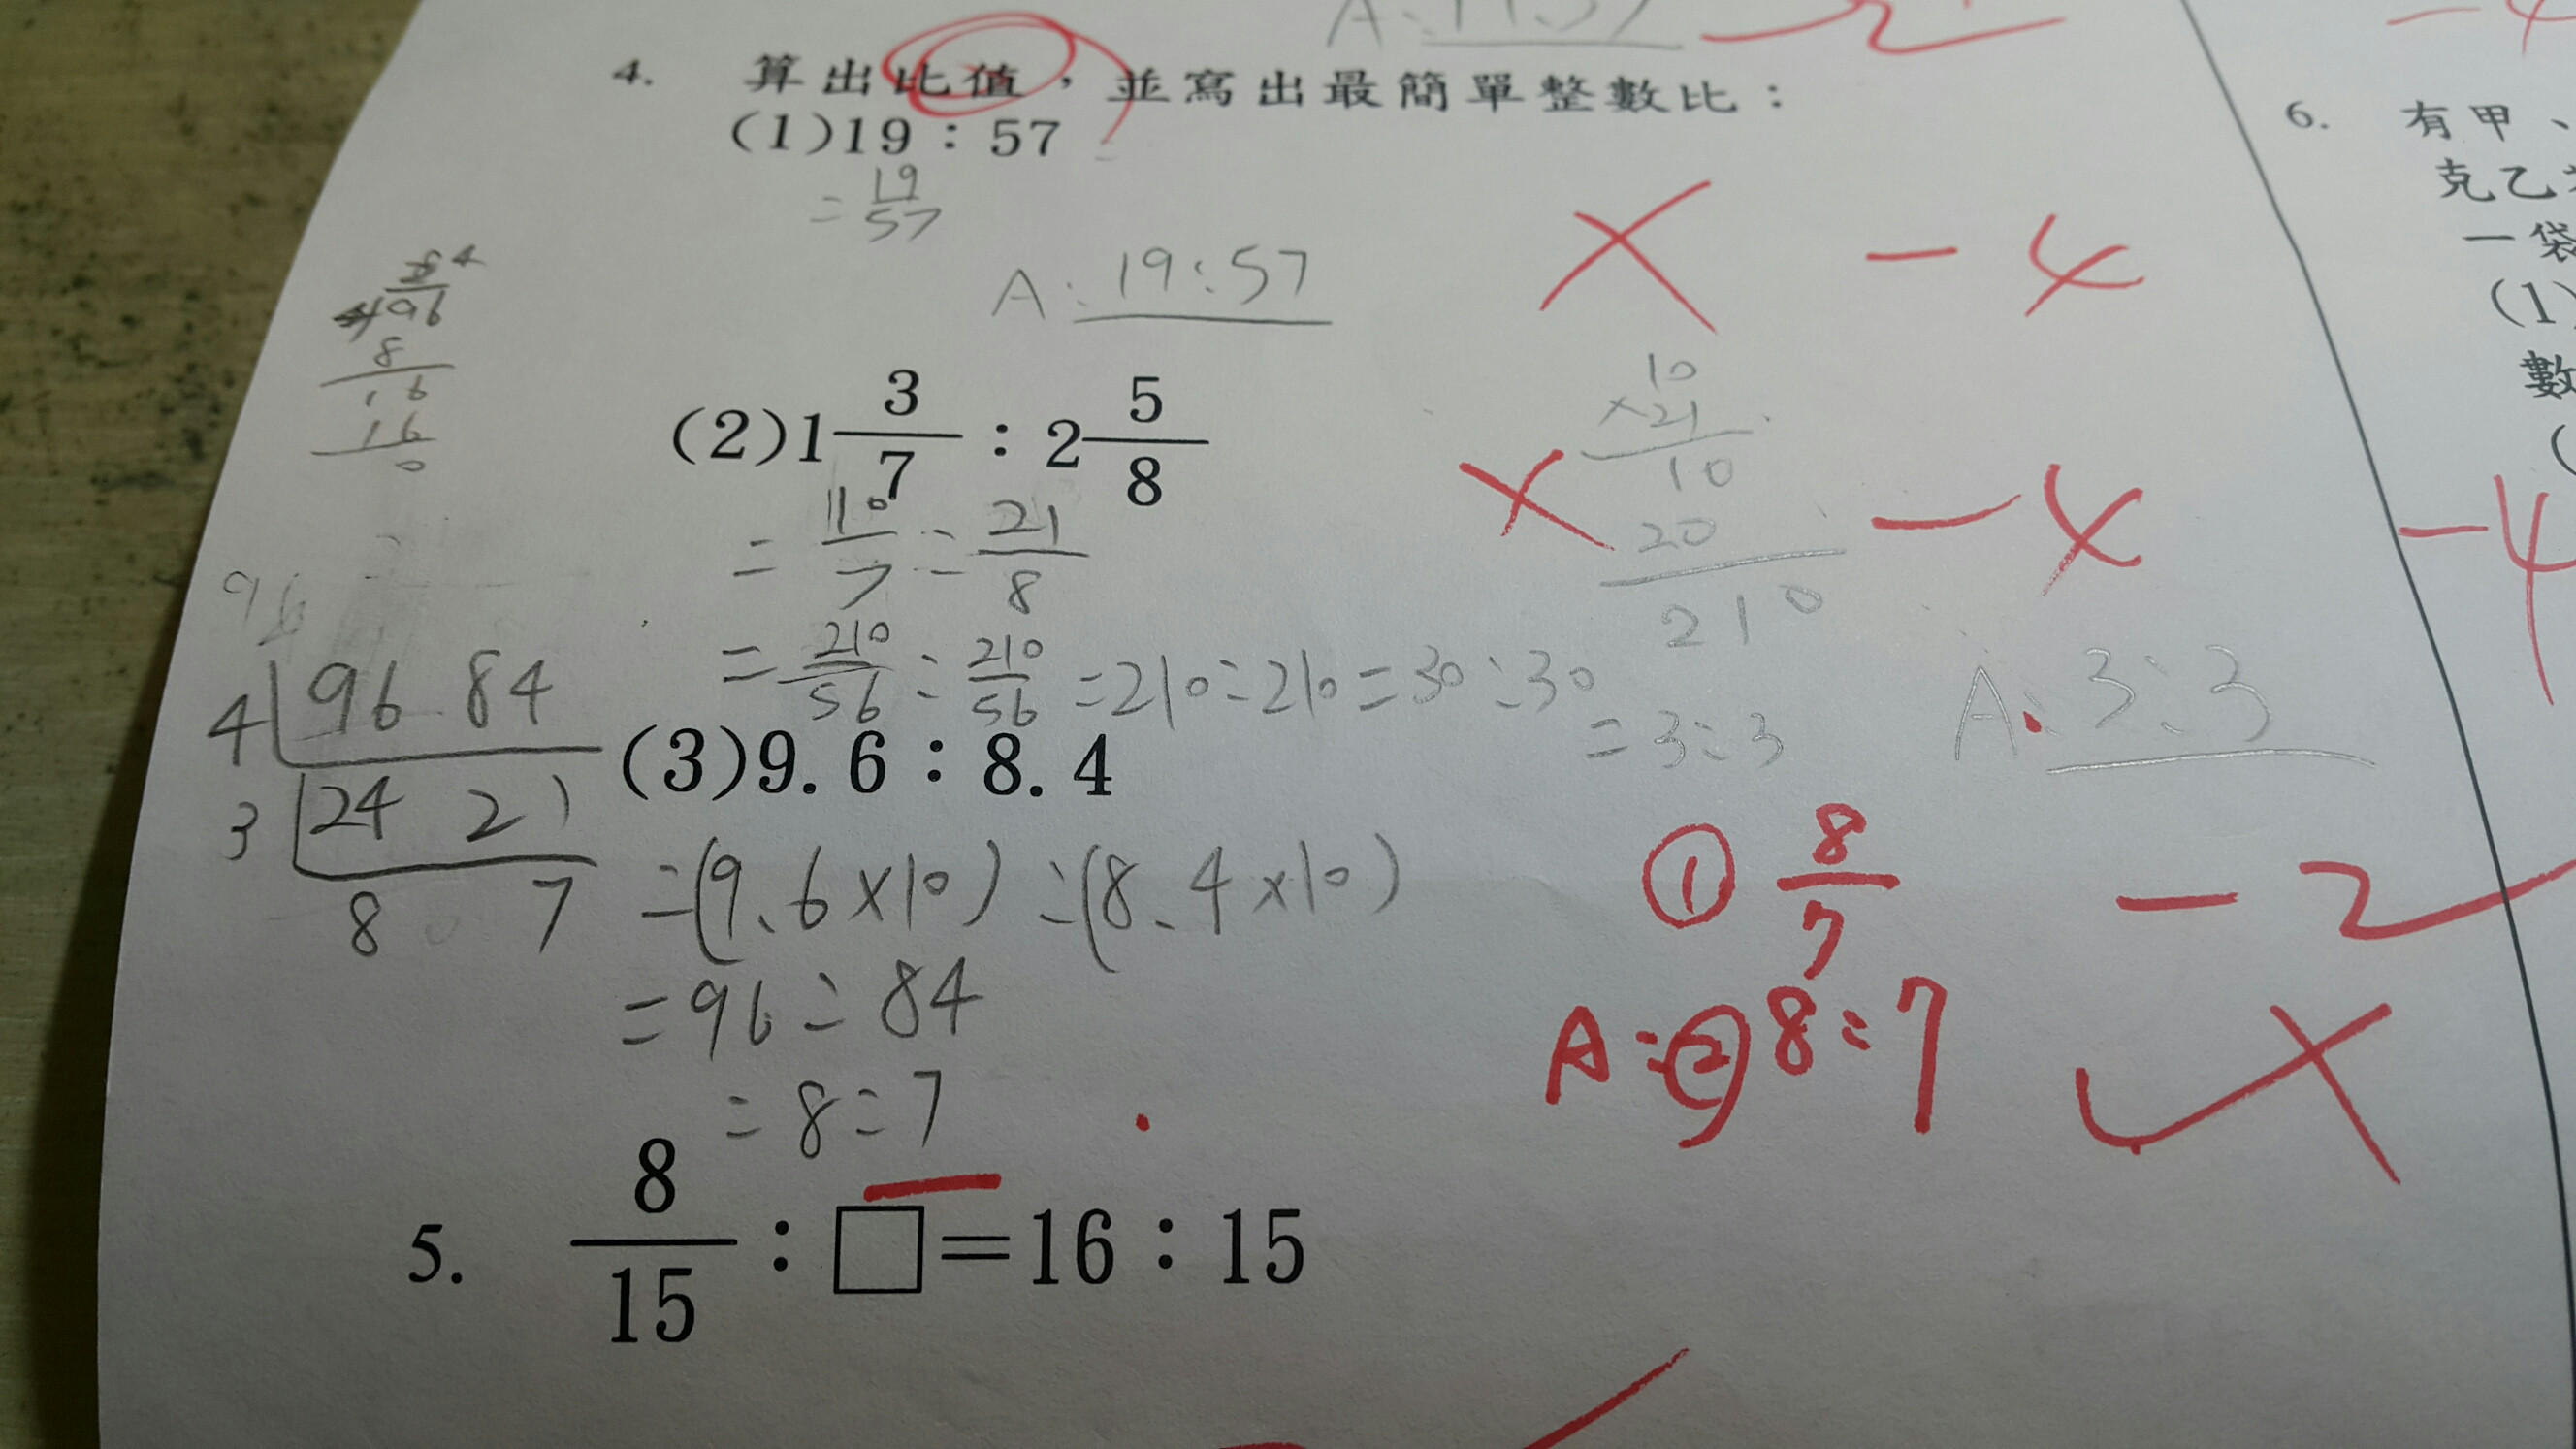 A: 19:57
4. 算出比值，並寫出最簡單整數比：
(1)19：57
= 19/57
A: 19:57
× -4
(2)1 3/7 ： 2 5/8
= 10/7 : 21/8
= 210/56 : 210/56 = 210:210 = 30:30
= 3:3
A: 3:3
10
×21
10
20
210
× -4
96
8
16
16
0
96
4 96 84
3 24 21
8 7
(3)9.6：8.4
=(9.6×10):(8.4×10)
=96:84
=8:7
① 8/7
A:② 8:7
-2
5. 8/15 ： □=16：15
-4
6. 有甲、
克乙
一袋
(1)
數
(
-4